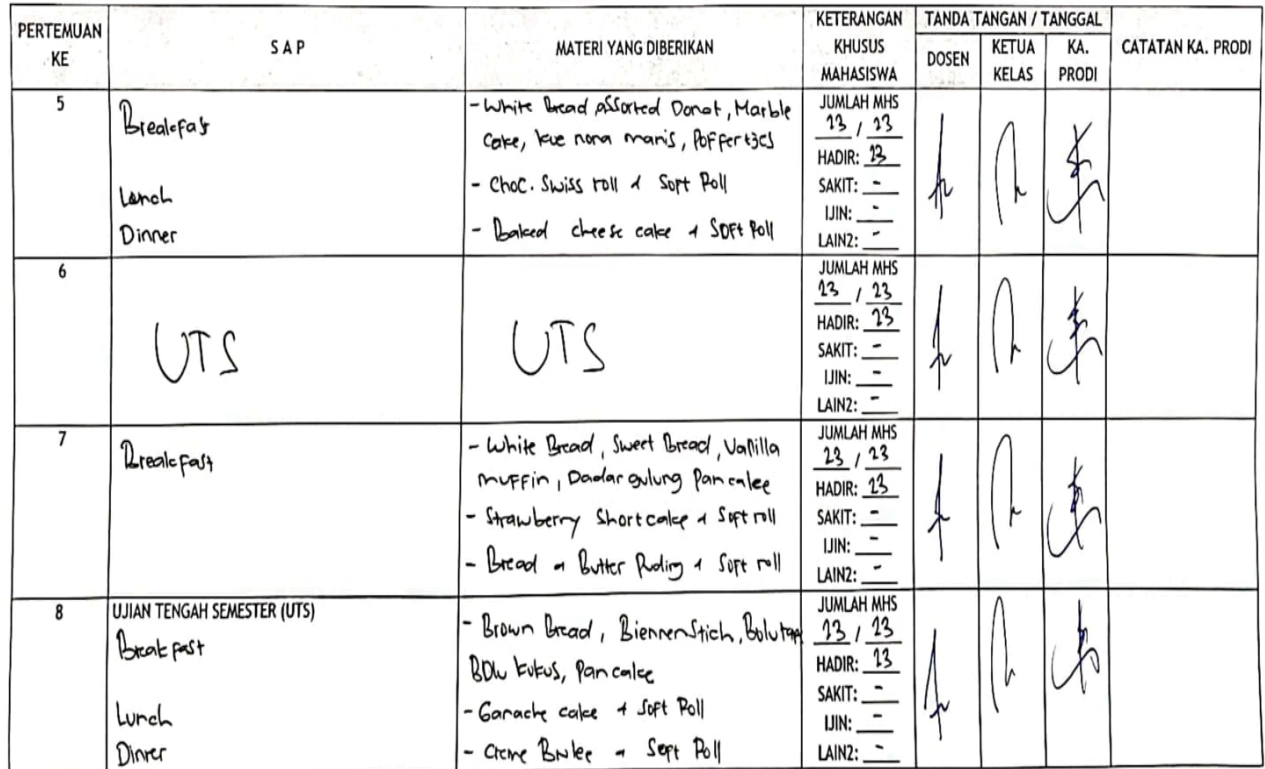 PERTEMUAN KE
S A P
MATERI YANG DIBERIKAN
KETERANGAN KHUSUS MAHASISWA
TANDA TANGAN / TANGGAL
DOSEN
KETUA KELAS
KA. PRODI
CATATAN KA. PRODI
5
Breakfast
Lunch
Dinner
- White Bread Assorted Donat, Marble
Cake, kue nona manis, Poffertjes
- Choc. Swiss roll & Soft Roll
- Baked cheese cake & Soft Roll
JUMLAH MHS
23 / 23
HADIR: 23
SAKIT: -
IJIN: -
LAIN2: -
6
UTS
UTS
JUMLAH MHS
23 / 23
HADIR: 23
SAKIT: -
IJIN: -
LAIN2: -
7
Breakfast
- White Bread, Sweet Bread, Vanilla
muffin, Dadar gulung Pancake
- Strawberry Shortcake & Soft roll
- Bread & Butter Puding & Soft roll
JUMLAH MHS
23 / 23
HADIR: 23
SAKIT: -
IJIN: -
LAIN2: -
8
UJIAN TENGAH SEMESTER (UTS)
Breakfast
Lunch
Dinner
- Brown Bread, Biennenstich, Bolu
Bolu kukus, Pancake
- Ganache cake & Soft Roll
- Creme Brulee & Soft Roll
JUMLAH MHS
23 / 23
HADIR: 23
SAKIT: -
IJIN: -
LAIN2: -